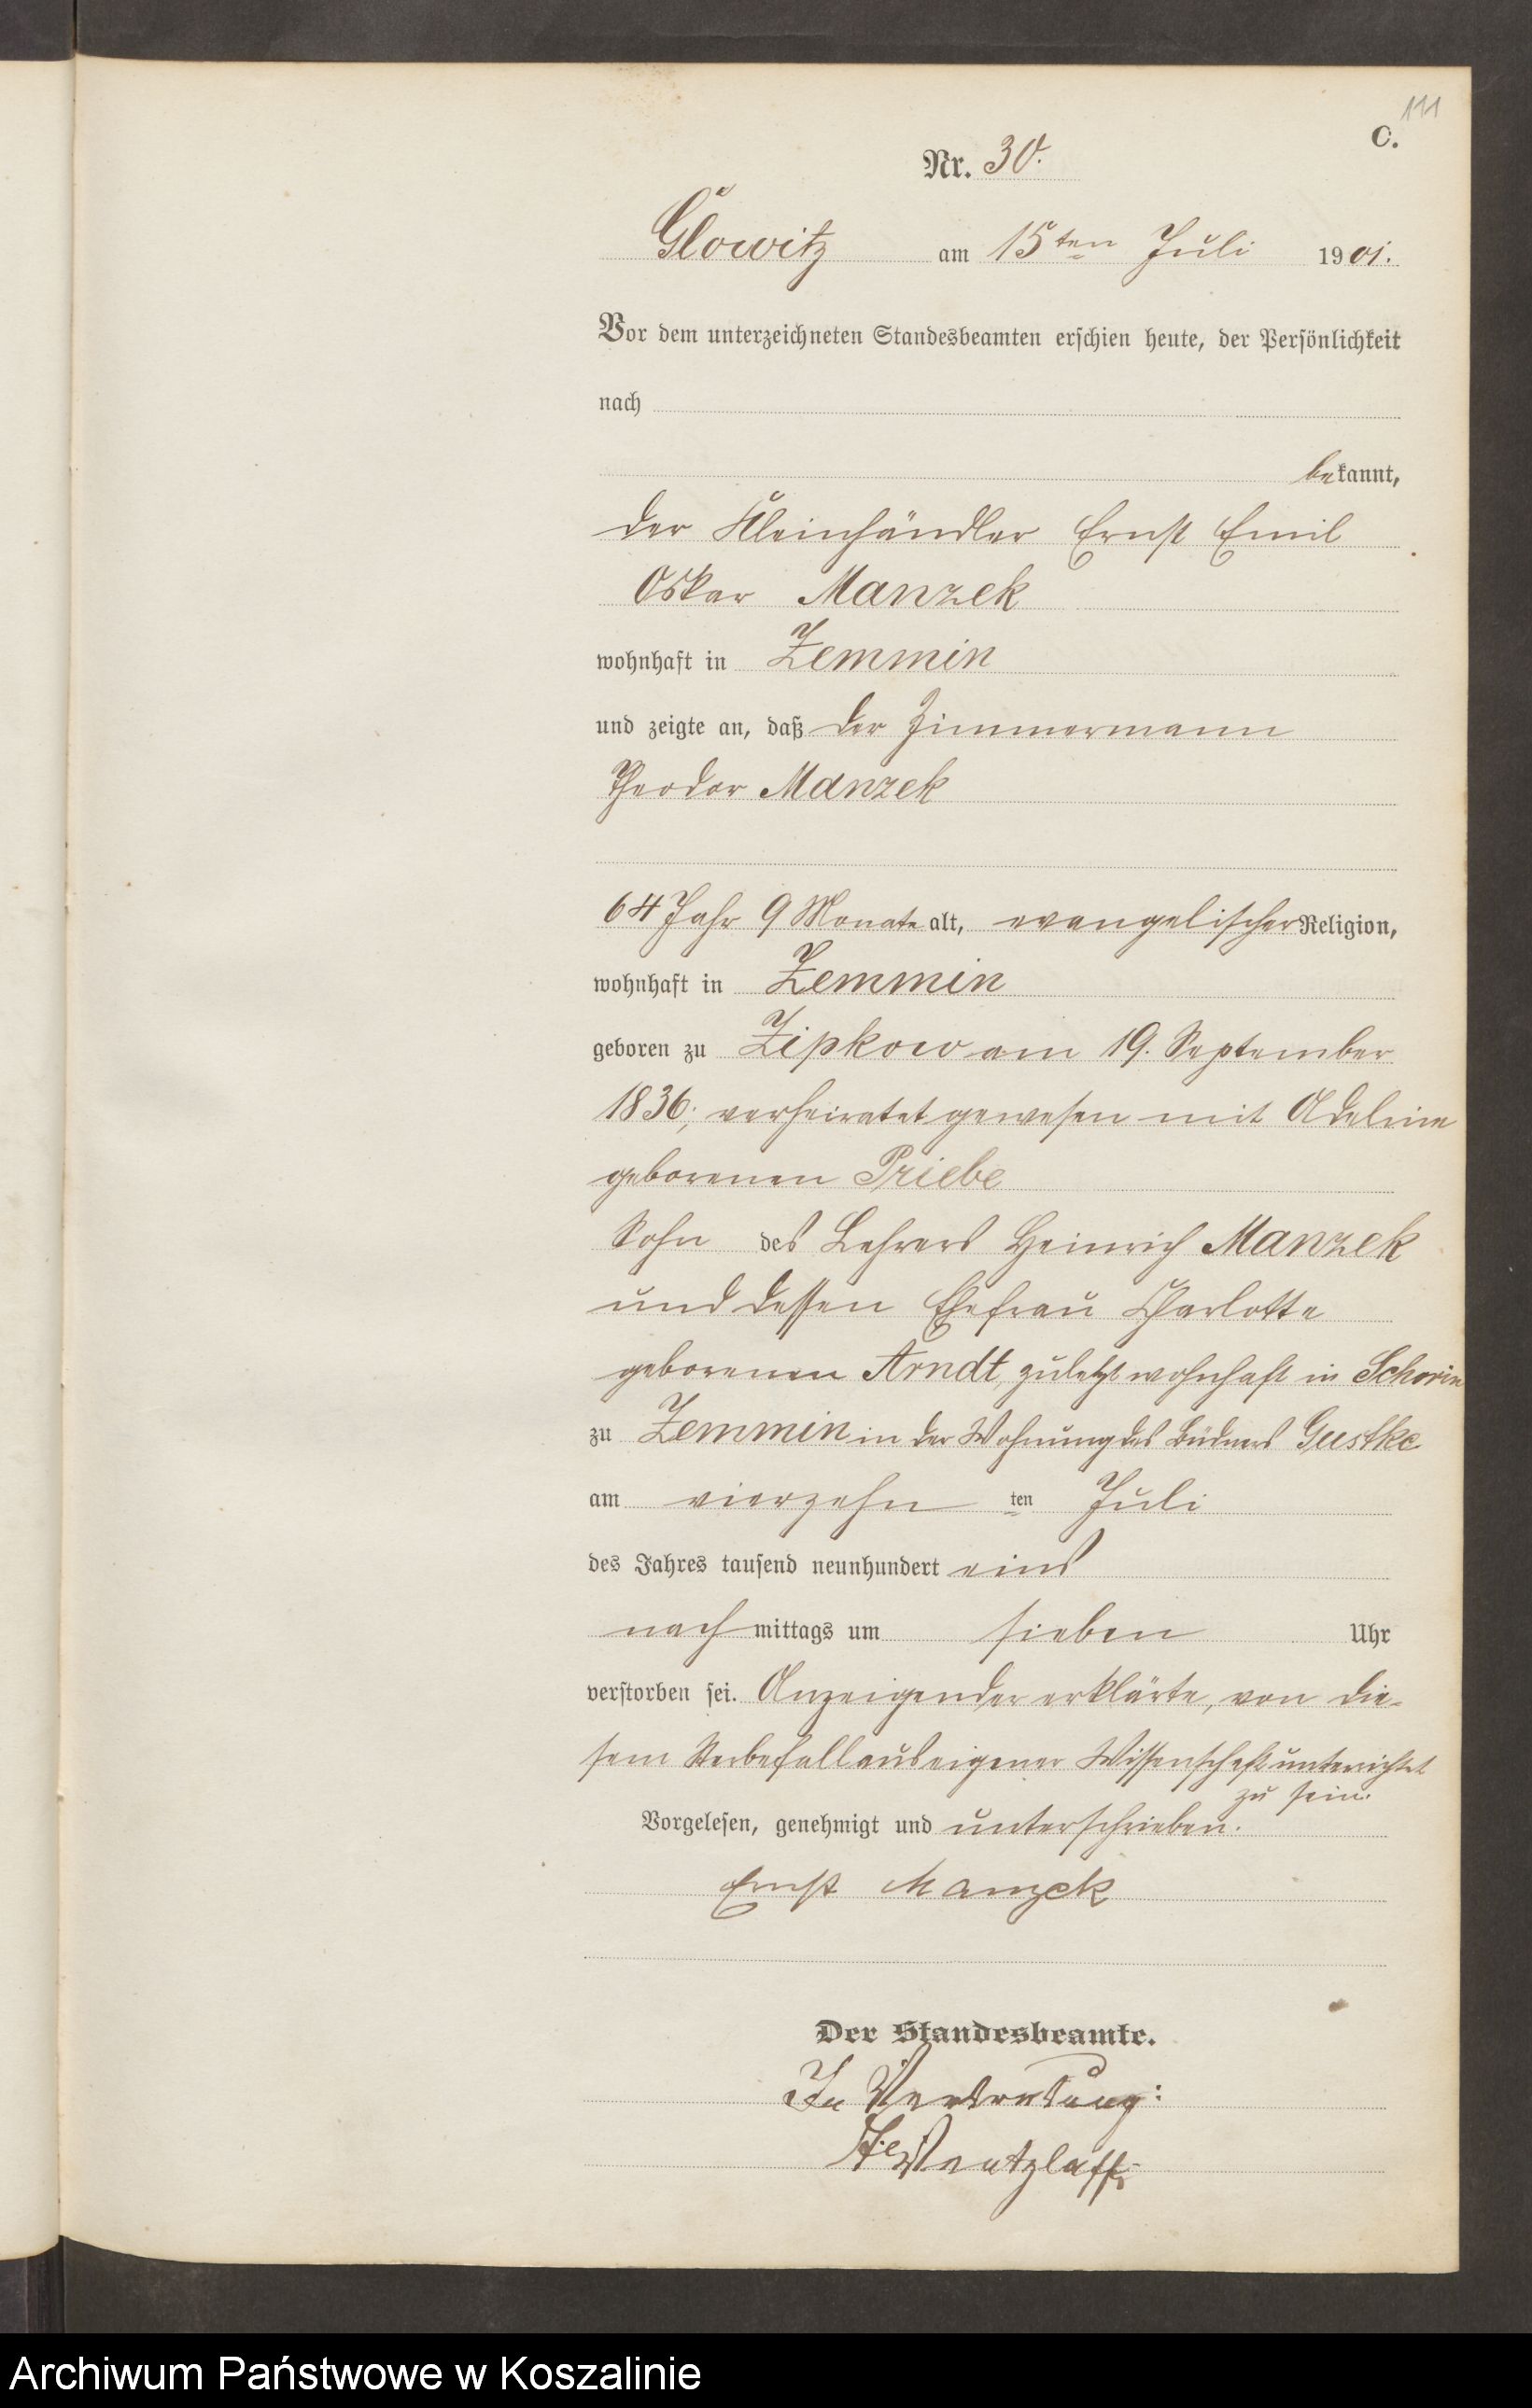 111
C.
Nr. 30.
Glowitz am 15ten Juli 1901.
Vor dem unterzeichneten Standesbeamten erschien heute, der Persönlichkeit
nach
bekannt,
der Kleinhändler Ernst Emil
Oskar Manzek
wohnhaft in Zemmin
und zeigte an, daß der Zimmermann
Theodor Manzek
64 Jahr 9 Monate alt, evangelischer Religion,
wohnhaft in Zemmin
geboren zu Zipkow am 19. September
1836; verheiratet gewesen mit Adeline
geborenen Priebe
Sohn des Lehrers Heinrich Manzek
und dessen Ehefrau Charlotte
geborenen Arndt, zuletzt wohnhaft in Schorin
zu Zemmin in der Wohnung des Büdners Gustke
am vierzehn ten Juli
des Jahres tausend neunhundert eins
nachmittags um sieben Uhr
verstorben sei. Anzeigender erklärte, von die-
sem Sterbefall aus eigener Wissenschaft unterrichtet
zu sein.
Vorgelesen, genehmigt und unterschrieben.
Ernst Manzek
Der Standesbeamte.
In Vertretung:
Wentzlaff
Archiwum Państwowe w Koszalinie